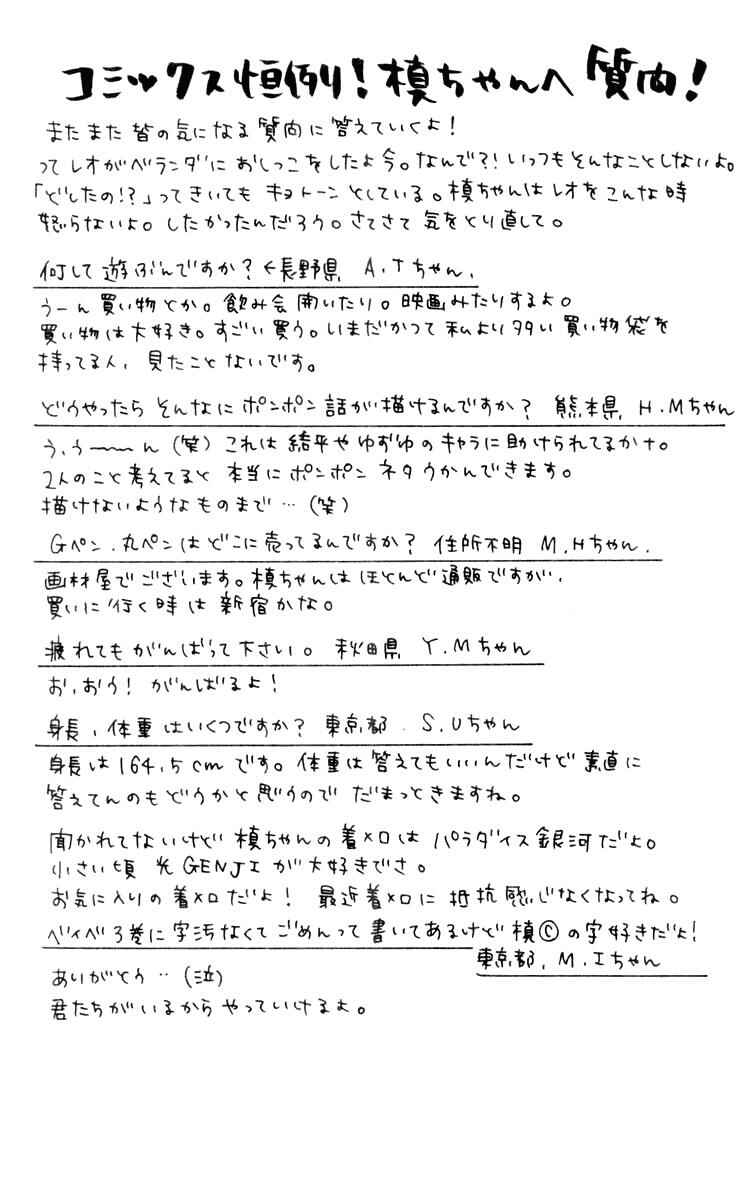 コミックス恒例り！槙ちゃんへ質問！
またまた皆の気になる質問に答えていくよ！
ってレオがベランダにおしっこをしたよ今。なんで？！いっつもそんなことしないよ。
「どしたの！？」ってきいてもキョトーンとしている。槙ちゃんはレオをこんな時
怒らないよ。したかったんだろう。さてさて気をとり直して。
何して遊ぶんですか？←長野県 A.Tちゃん．
うーん買い物とか。飲み会開いたり。映画みたりするよ。
買い物は大好き。すごい買う。いまだかつて私より多い買い物袋を
持ってる人、見たことないです。
どうやったらそんなにポンポン話が描けるんですか？ 熊本県 H.Mちゃん
う、う〜〜ん（笑）これは綺平やゆずゆのキャラに助けられてるかナ。
2人のこと考えてると本当にポンポンネタうかんできます。
描けないようなものまで…（笑）
Gペン．丸ペンはどこに売ってるんですか？ 住所不明 M.Hちゃん．
画材屋でございます。槙ちゃんはほとんど通販ですが、
買いに行く時は新宿かな。
疲れてもがんばって下さい。 秋田県 Y.Mちゃん
お、おう！がんばるよ！
身長、体重はいくつですか？ 東京都．S.Uちゃん
身長は164.5cmです。体重は答えてもいいんだけど素直に
答えてんのもどうかと思うのでだまっときますね。
聞かれてないけど槙ちゃんの着メロはパラダイス銀河だよ。
小さい頃光GENJIが大好きでさ。
お気に入りの着メロだよ！最近着メロに抵抗感じなくなってね。
ベイベ3巻に字汚なくてごめんって書いてあるけど槙©の字好きだよ！
東京都、M.Iちゃん
ありがとう‥（泣）
君たちがいるからやっていけるよ。